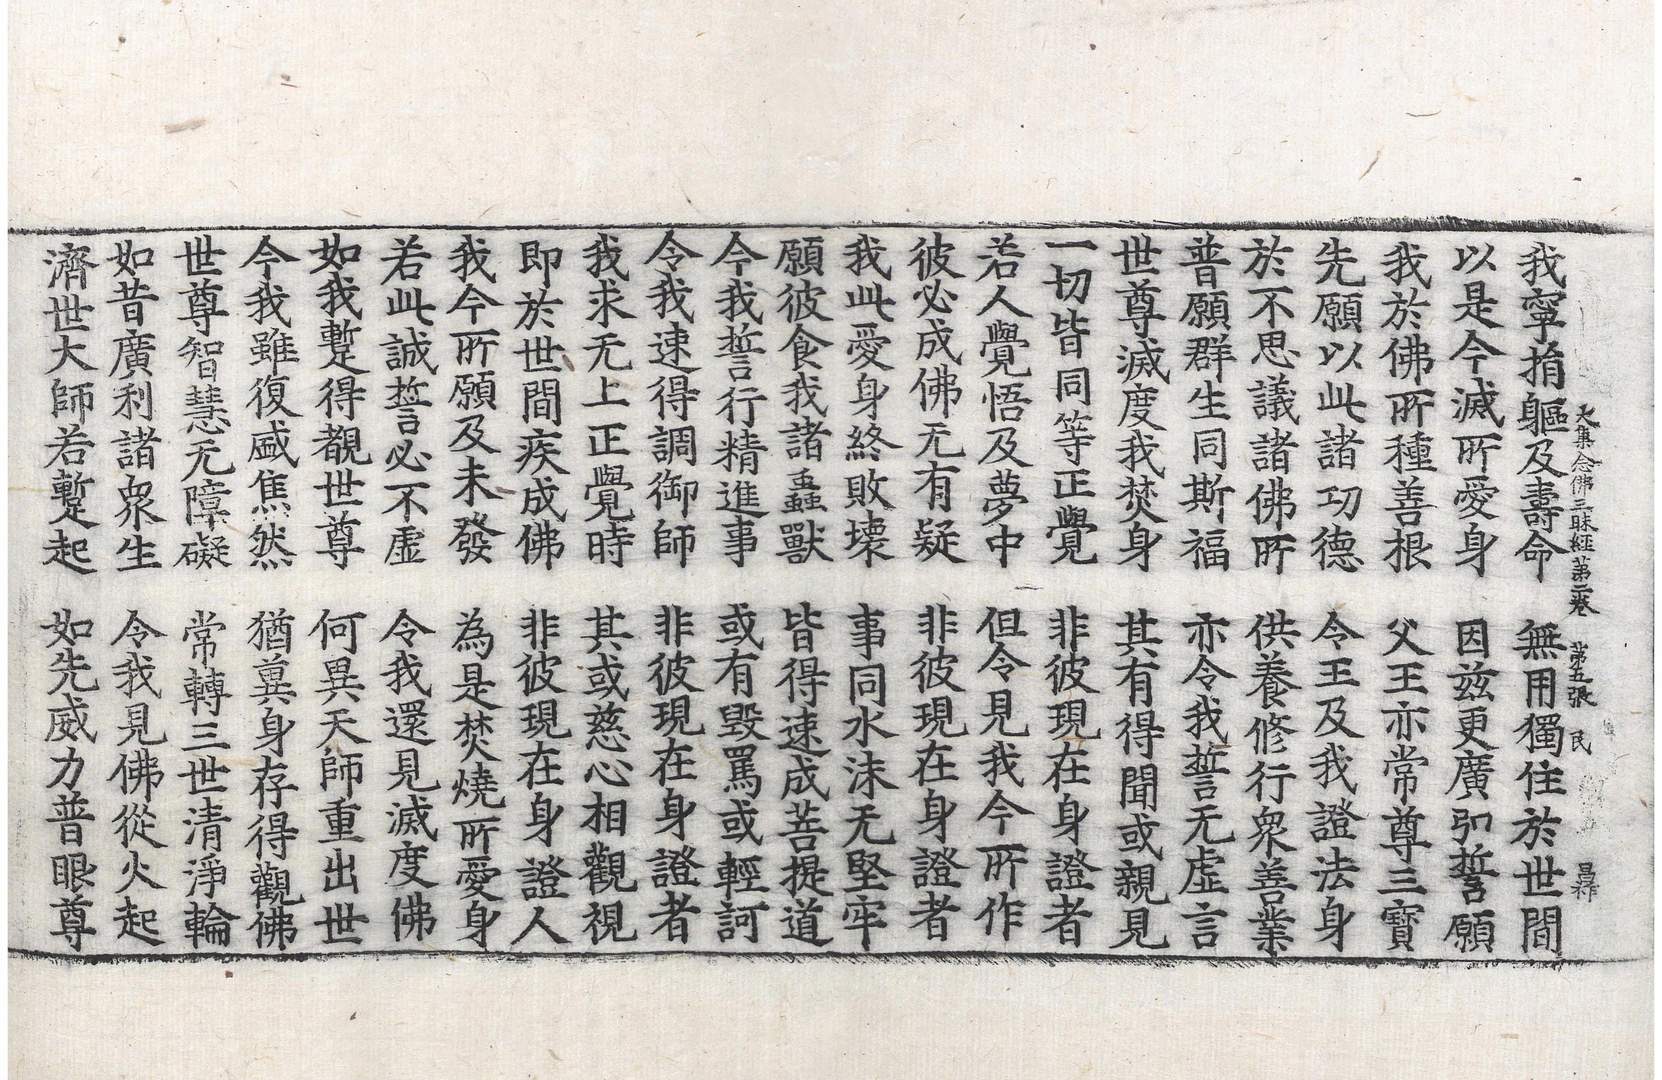 大集念佛三昧經第二卷　第五張　民　昌祚
我寧捐軀及壽命　無用獨住於世間
以是今滅所愛身　因玆更廣弘誓願
我於佛所種善根　父王亦常尊三寶
先願以此諸功德　令王及我證法身
於不思議諸佛所　供養修行衆善業
普願群生同斯福　亦令我誓无虛言
世尊滅度我焚身　其有得聞或親見
一切皆同等正覺　非彼現在身證者
若人覺悟及夢中　但令見我今所作
彼必成佛无有疑　非彼現在身證者
我此愛身終敗壞　事同水沫无堅牢
願彼食我諸蟲獸　皆得速成菩提道
今我誓行精進事　或有毀罵或輕訶
令我速得調御師　非彼現在身證者
我求无上正覺時　其或慈心相觀視
即於世間疾成佛　非彼現在身證人
我今所願及未發　為是焚燒所愛身
若此誠誓必不虛　令我還見滅度佛
如我蹔得覩世尊　何異天師重出世
今我雖復盛焦然　猶冀身存得觀佛
世尊智慧无障礙　常轉三世清淨輪
如昔廣利諸衆生　令我見佛從火起
濟世大師若蹔起　如先威力普眼尊